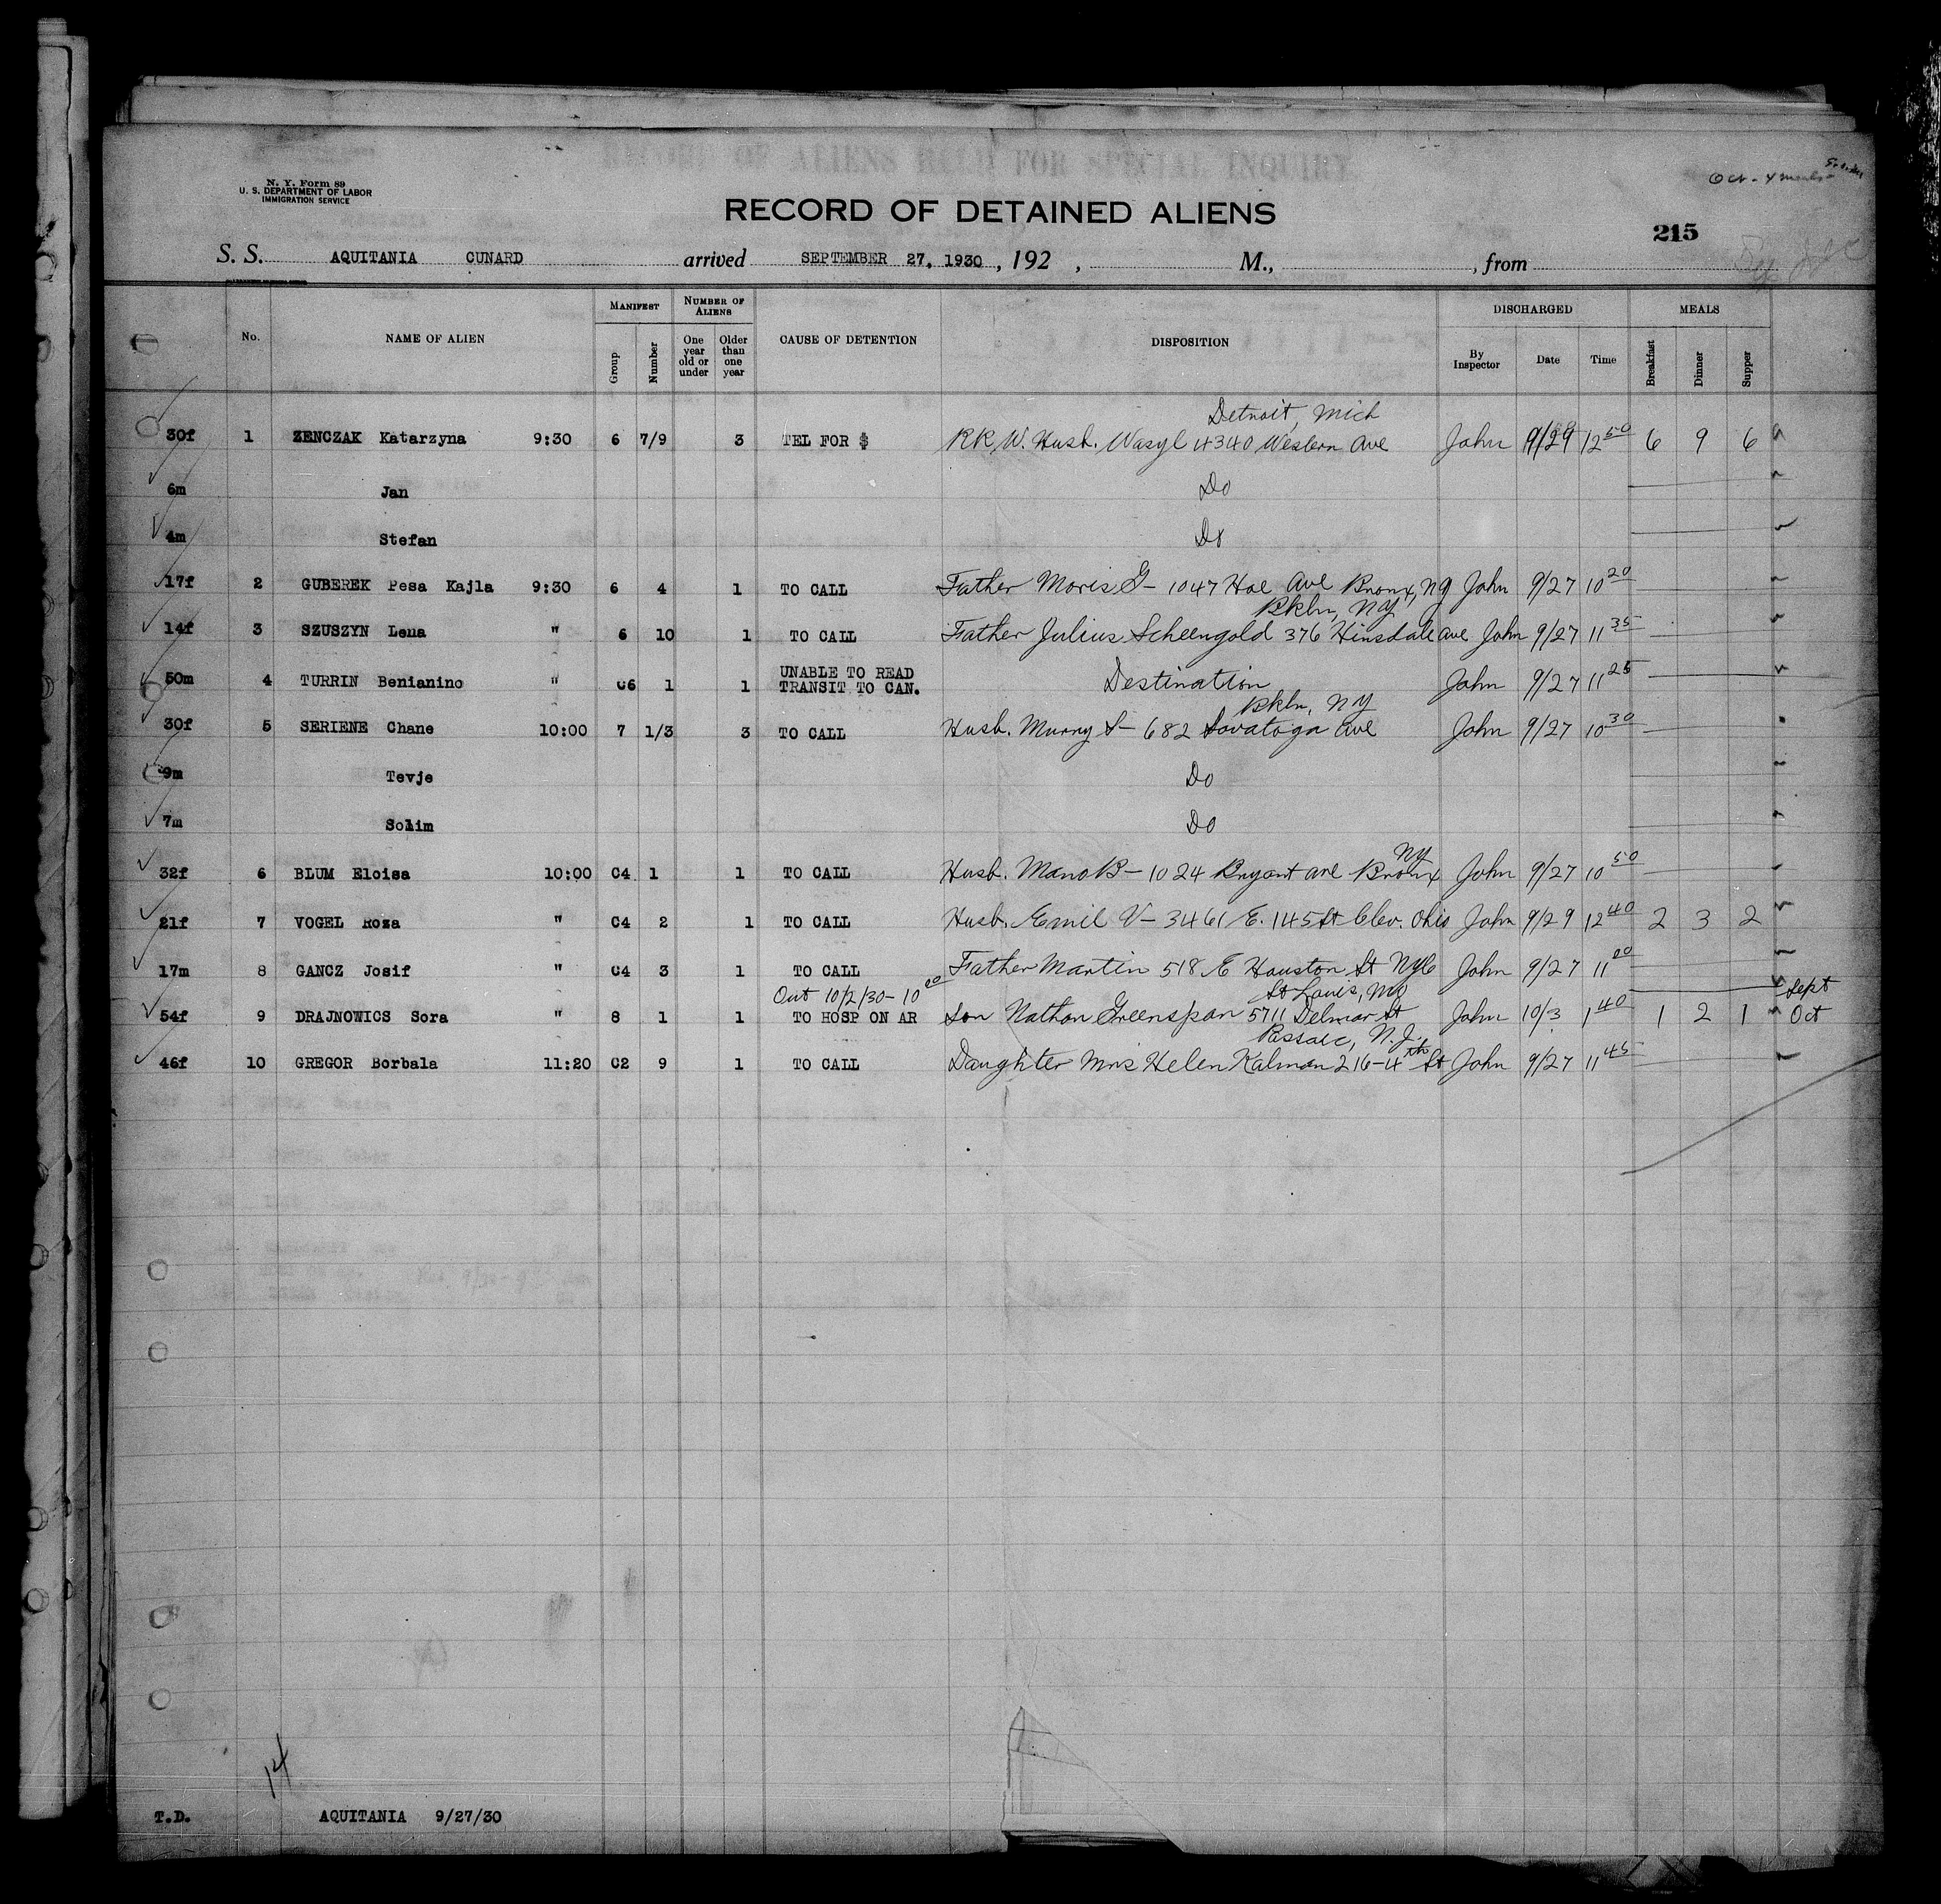 RECORD OF ALIENS HELD FOR SPECIAL INQUIRY
N. Y. Form 89
U. S. DEPARTMENT OF LABOR
IMMIGRATION SERVICE
Oct - 4 meals
RECORD OF DETAINED ALIENS
215
S. S. AQUITANIA CUNARD arrived SEPTEMBER 27, 1930, 192 , M., , from
No. NAME OF ALIEN MANIFEST Group Number NUMBER OF ALIENS One year old or under Older than one year CAUSE OF DETENTION DISPOSITION DISCHARGED By Inspector Date Time MEALS Breakfast Dinner Supper
Detroit, Mich
30f 1 ZENCZAK Katarzyna 9:30 6 7/9 3 TEL FOR $ RR W. Husb. Wasyl 4340 Western Ave John 9/29 12 50 6 9 6
6m Jan Do
4m Stefan Do
17f 2 GUBEREK Pesa Kajla 9:30 6 4 1 TO CALL Father Moris G- 1047 Hoe Ave Bronx, NY John 9/27 10 20
Bkln, NY
14f 3 SZUSZYN Lena " 6 10 1 TO CALL Father Julius Scheengold 376 Hinsdale ave John 9/27 11 35
50m 4 TURRIN Benianino " C6 1 1 UNABLE TO READ TRANSIT TO CAN. Destination John 9/27 11 25
Bkln, NY
30f 5 SERIENE Chane 10:00 7 1/3 3 TO CALL Husb. Murry S- 682 Savatoga Ave John 9/27 10 30
9m Tevje Do
7m Solim Do
32f 6 BLUM Eloisa 10:00 C4 1 1 TO CALL Husb. Mano B- 1024 Bryant ave Bronx NY John 9/27 10 50
21f 7 VOGEL Roza " C4 2 1 TO CALL Husb. Emil V- 3461 E. 145 St Clev. Ohio John 9/29 12 40 2 3 2
17m 8 GANCZ Josif " C4 3 1 TO CALL Father Martin 518 E Houston St NYC John 9/27 11 20
Out 10/2/30 - 10 00 St Louis, Mo Sept
54f 9 DRAJNOWICS Sora " 8 1 1 TO HOSP ON AR Son Nathan Greenspan 5711 Delmar St John 10/3 1 40 1 2 1 Oct
Passaic, N. J.
46f 10 GREGOR Borbala 11:20 C2 9 1 TO CALL Daughter Mrs Helen Kalman 216-4th St John 9/27 11 45
14
T.D. AQUITANIA 9/27/30